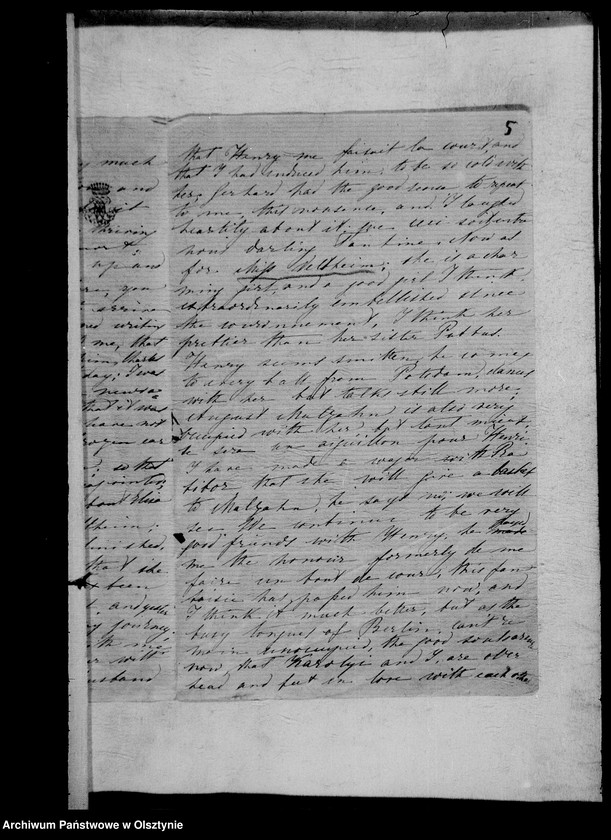 5
that Henry me faisait la cour, and
that I had induced him to be so cold with
her. Gerhard had the good sense to repeat
to me, this nonsense, and I laughed
heartily about it,
nous darling Now as
for Miss Veltheim; she is a char
ming girl, and a good girl I think,
extraordinarily embellished since
the couronnement, I think her
prettier than her sister Putbus.
Henry seems smitten, he comes
to every ball from Potsdam, dances
with her but talks still more;
August Maltzahn is also very
occupied with her, but tant mieux,
ce sera un aiguillon pour Henri.
I have made a wager with Ra
tibor that she will give a basket
to Maltzahn, he says no; we will
see. We continue to be very
good friends with Henry, he
me the honour formerly de me
faire un bout de cour, this fan
taisie has passed him now, and
I think it much better, but as the
busy tongues of Berlin can't re
main unoccupied, the good souls
now, that Karolyi and I, are over
head and feet in love with each other
much
and
it
thriving
up and
you
writing
me, that
thanks
day; I was
that it was
have not
so that
about
finished,
that she
been
and
journey,
with me
with
husband
Archiwum Państwowe w Olsztynie